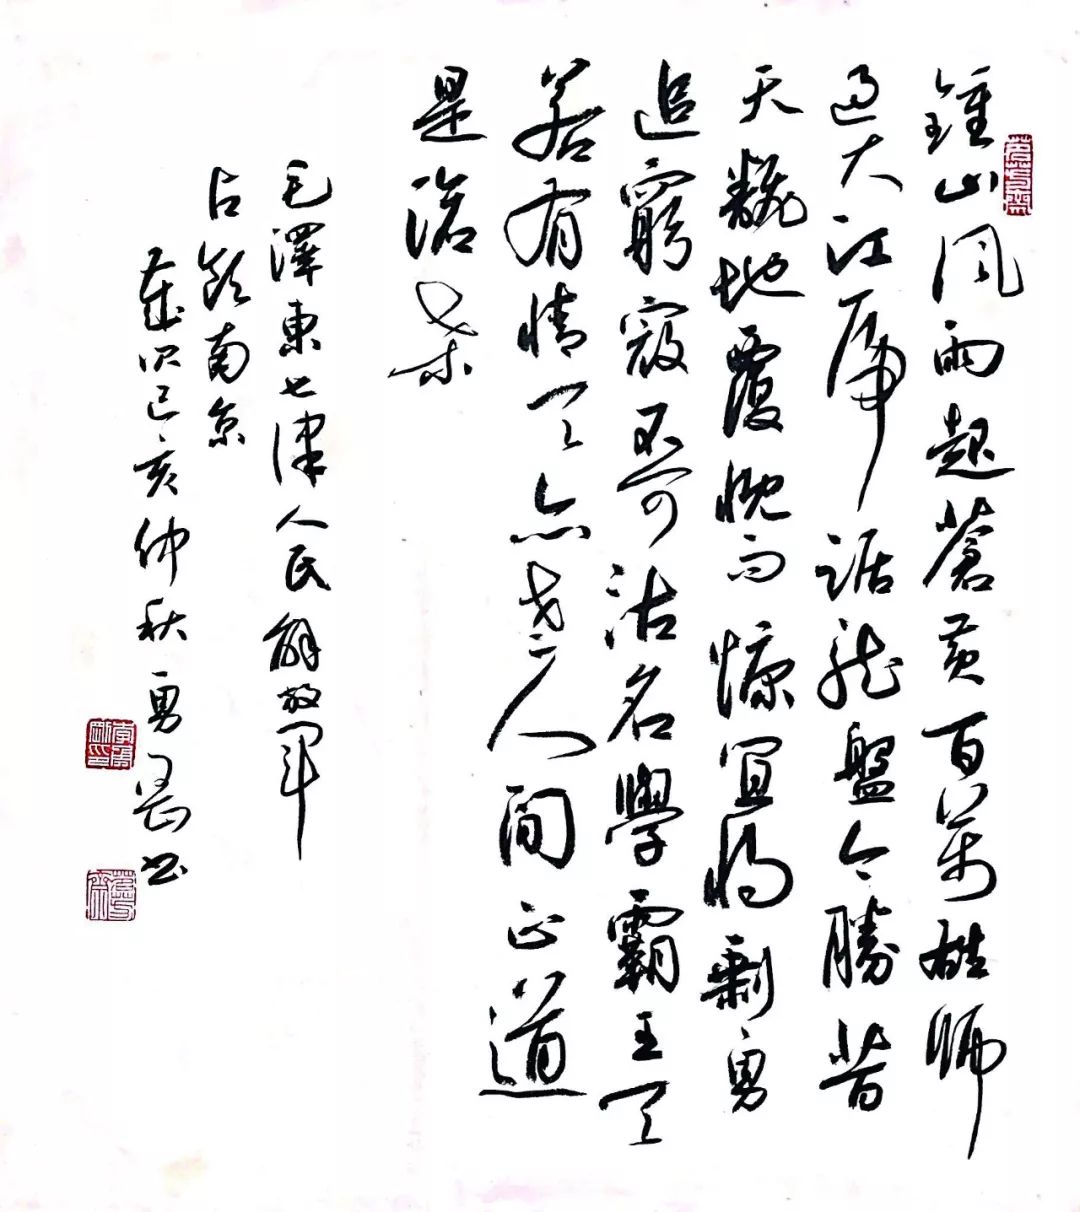 鍾山风雨起蒼黄百萬雄师
过大江虎踞龙盘今勝昔
天翻地覆慨而慷宜将剩勇
追窮寇不可沽名學霸王天
若有情天亦老人间正道
是滄桑
毛澤東七律人民解放军
占领南京
歲次己亥仲秋勇刚书